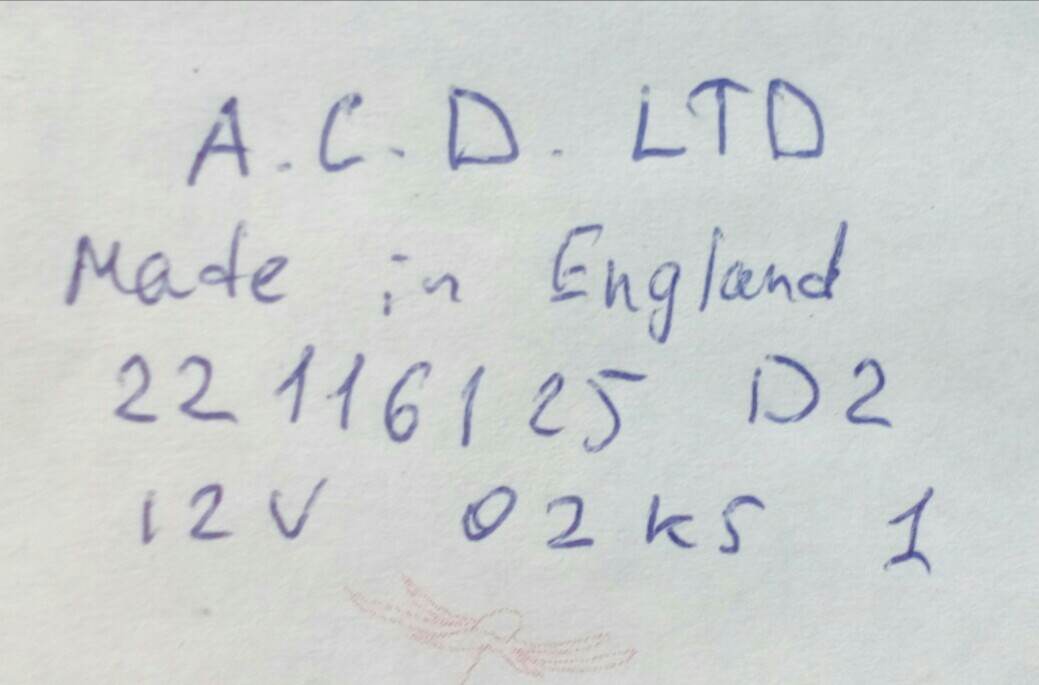 A.C.D. LTD
Made in England
22 116125 D2
12V 02KS 1